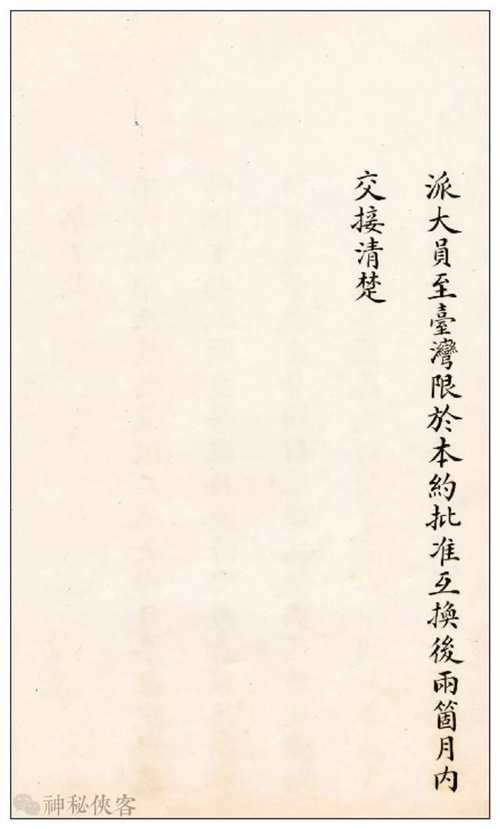 派大員至臺灣限於本約批准互換後兩箇月內
交接清楚
神秘侠客